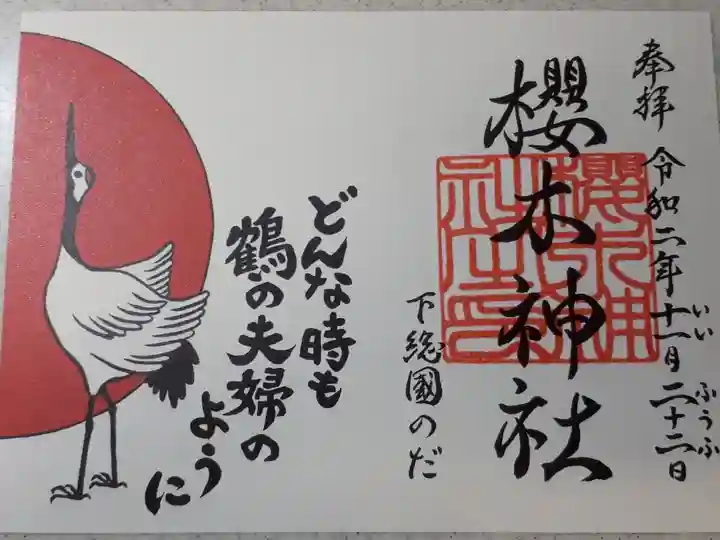 奉拝 令和二年十一月二十二日
いい ふうふ
櫻木神社
下総國のだ
どんな時も
鶴の夫婦の
ように